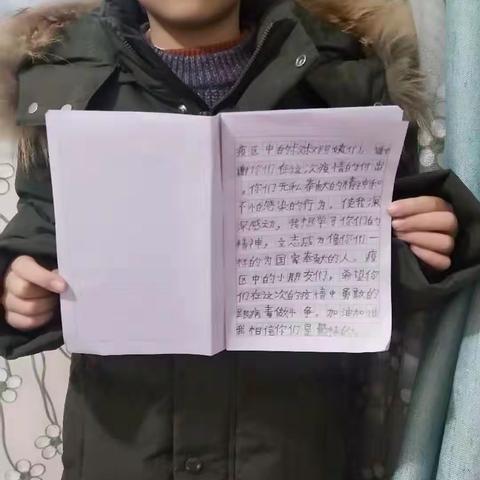 疫区中的叔叔阿姨们，谢
谢你们在这次疫情的付出
，你们无私奉献的精神和
不怕感染的行为，使我深
深感动，我想学习你们的
精神，立志成为像你们一
样的为国家奉献的人。疫
区中的小朋友们，希望你
们在这次的疫情中勇敢的
跟病毒做斗争。加油加油
我相信你们是最棒的。